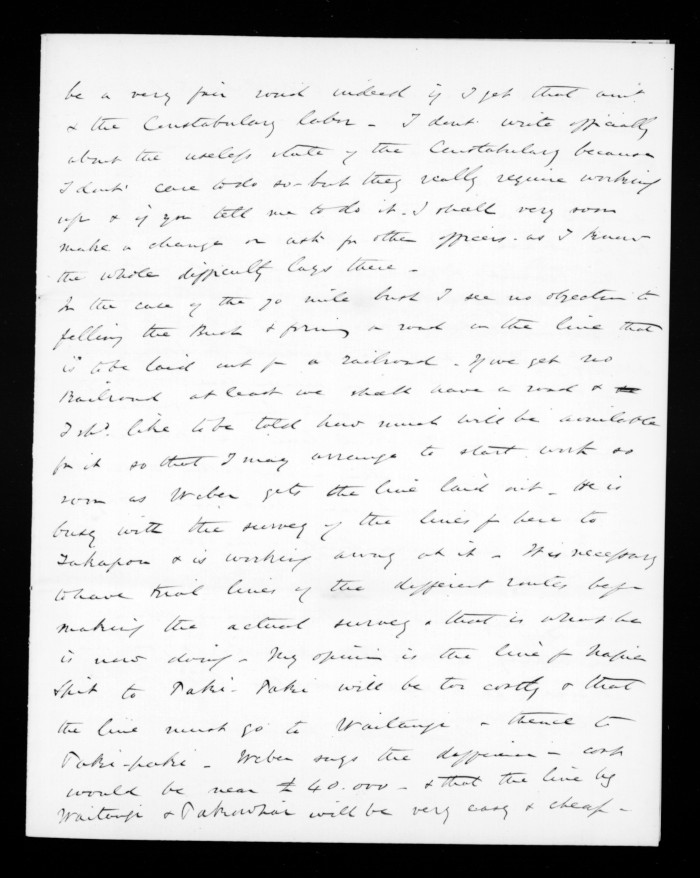 be a very fair road indeed if I get that amt.
& the Constabulary labor - I dont write officially
about the useless state of the Constabulary because
I dont care to do so - but they really require working
up & if you tell me to do it - I shall very soon
make a change or ask for other officers - as I know
the whole difficulty lays there -
In the case of the 70 mile bush I see no objection to
felling the Bush & forming a road on the line that
is to be laid out for a railroad - If we get no
Railroad at least we shall have a road &
I shd. like to be told how much will be available
for it so that I may arrange to start work so
soon as Weber gets the line laid out - He is
busy with the survey of the lines fm here to
Takapou & is working away at it - It is necessary
to have trial lines of the different routes before
making the actual survey & that is what he
is now doing - My opinion is the line fm Napier
Spit to Paki-Paki will be too costly & that
the line must go to Waitangi & thence to
Paki-paki - Weber says the difference in cost
would be near £40.000 - & that the line by
Waitangi & Pakowhai will be very easy & cheap -